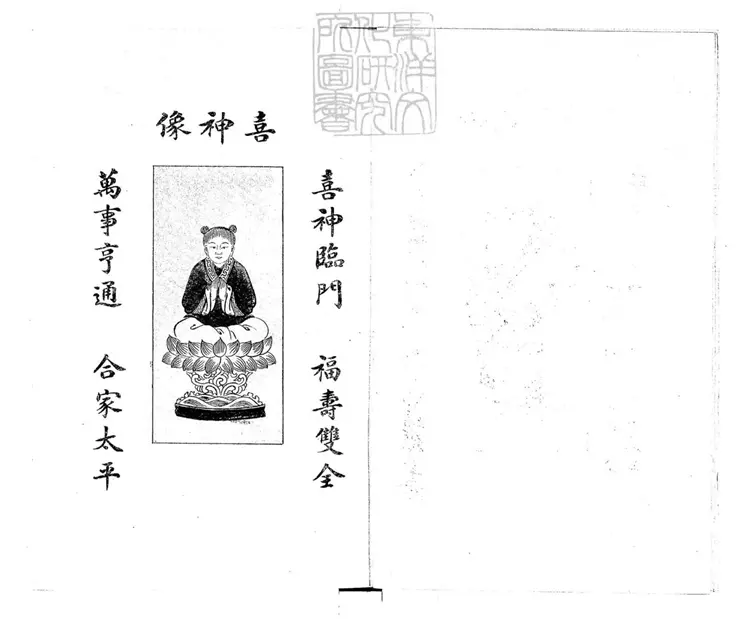 東洋文
化研究
所圖書
喜神像
喜神臨門 福壽雙全
萬事亨通 合家太平